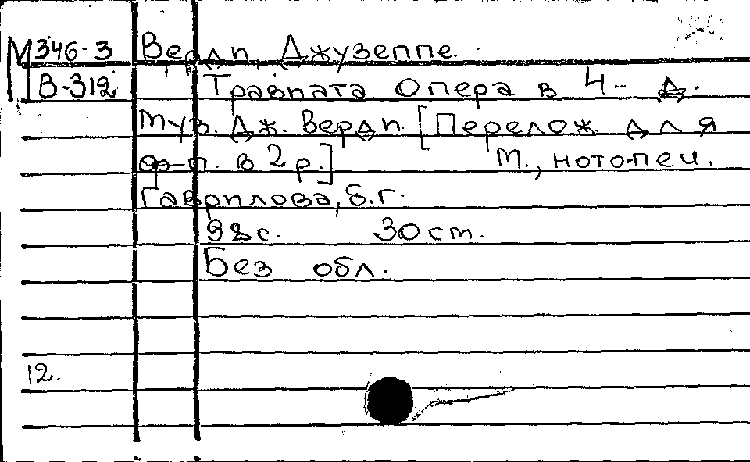 М346-3 Верди, Джузеппе.
В-312 Травиата Опера в 4- д.
муз. Дж. Верди. [Перелож. для
ф-п. в 2 р.] М., нотопеч.
Гаврилова, б.г.
98 с. 30 ст.
Без обл.
12.